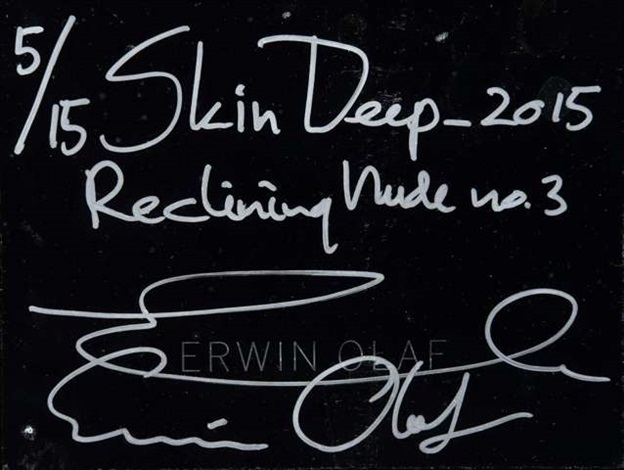 5/15 Skin Deep - 2015
Reclining Nude no. 3
ERWIN OLAF
Erwin Olaf